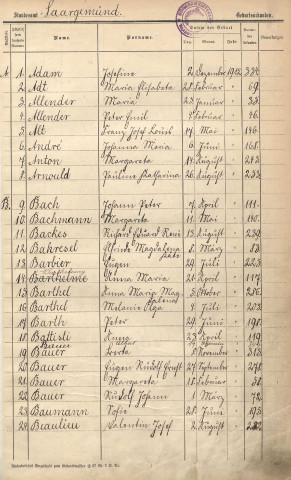 Standesamt Saargemünd. Geburtsurkunden.
Name. Vorname. Datum der Geburt
Tag. Monat. Jahr.
A. 1. Adam Josefine 2. Dezember 1902 332.
2. Adt Maria Elisabeta 28. Februar " 69.
3. Allender Maria 23. Januar " 33.
4. Allender Peter Emil Februar " 46.
5. Alt Franz Josef Louis 17. Mai " 146.
6. André Johanna Maria 6. Juni " 168.
7. Anton Margareta 14. August " 243.
8. Arnould Pauline Katharina 26. August " 253.
B. 9. Bach Johann Peter 21. April " 111.
10. Bachmann Margareta 11. Mai " 140.
11. Backes Richard Eduard René 13. August " 239.
12. Bakresel Magdalena 8. März " 83.
13. Barbier Eugen 29. Juli " 223.
14. Barthelmé Anna Maria 21. April " 117.
15. Barthel Anna Maria Magdalena 3. Oktober " 286.
16. Barthel Melanie Olga 4. Juli " 203.
17. Barth Peter 29. Juni " 198.
18. Battisti Anna 23. April " 119.
19. Bauer Berta 5. November " 313.
20. Bauer Eugen Rudolf Ernst 27. September " 278.
21. Bauer Margareta 18. Februar " 58.
22. Bauer Rudolf Johann 1. März " 72.
23. Baumann Sofie 28. Juni " 193.
24. Beaulieu Valentin Josef 2. August " 232.